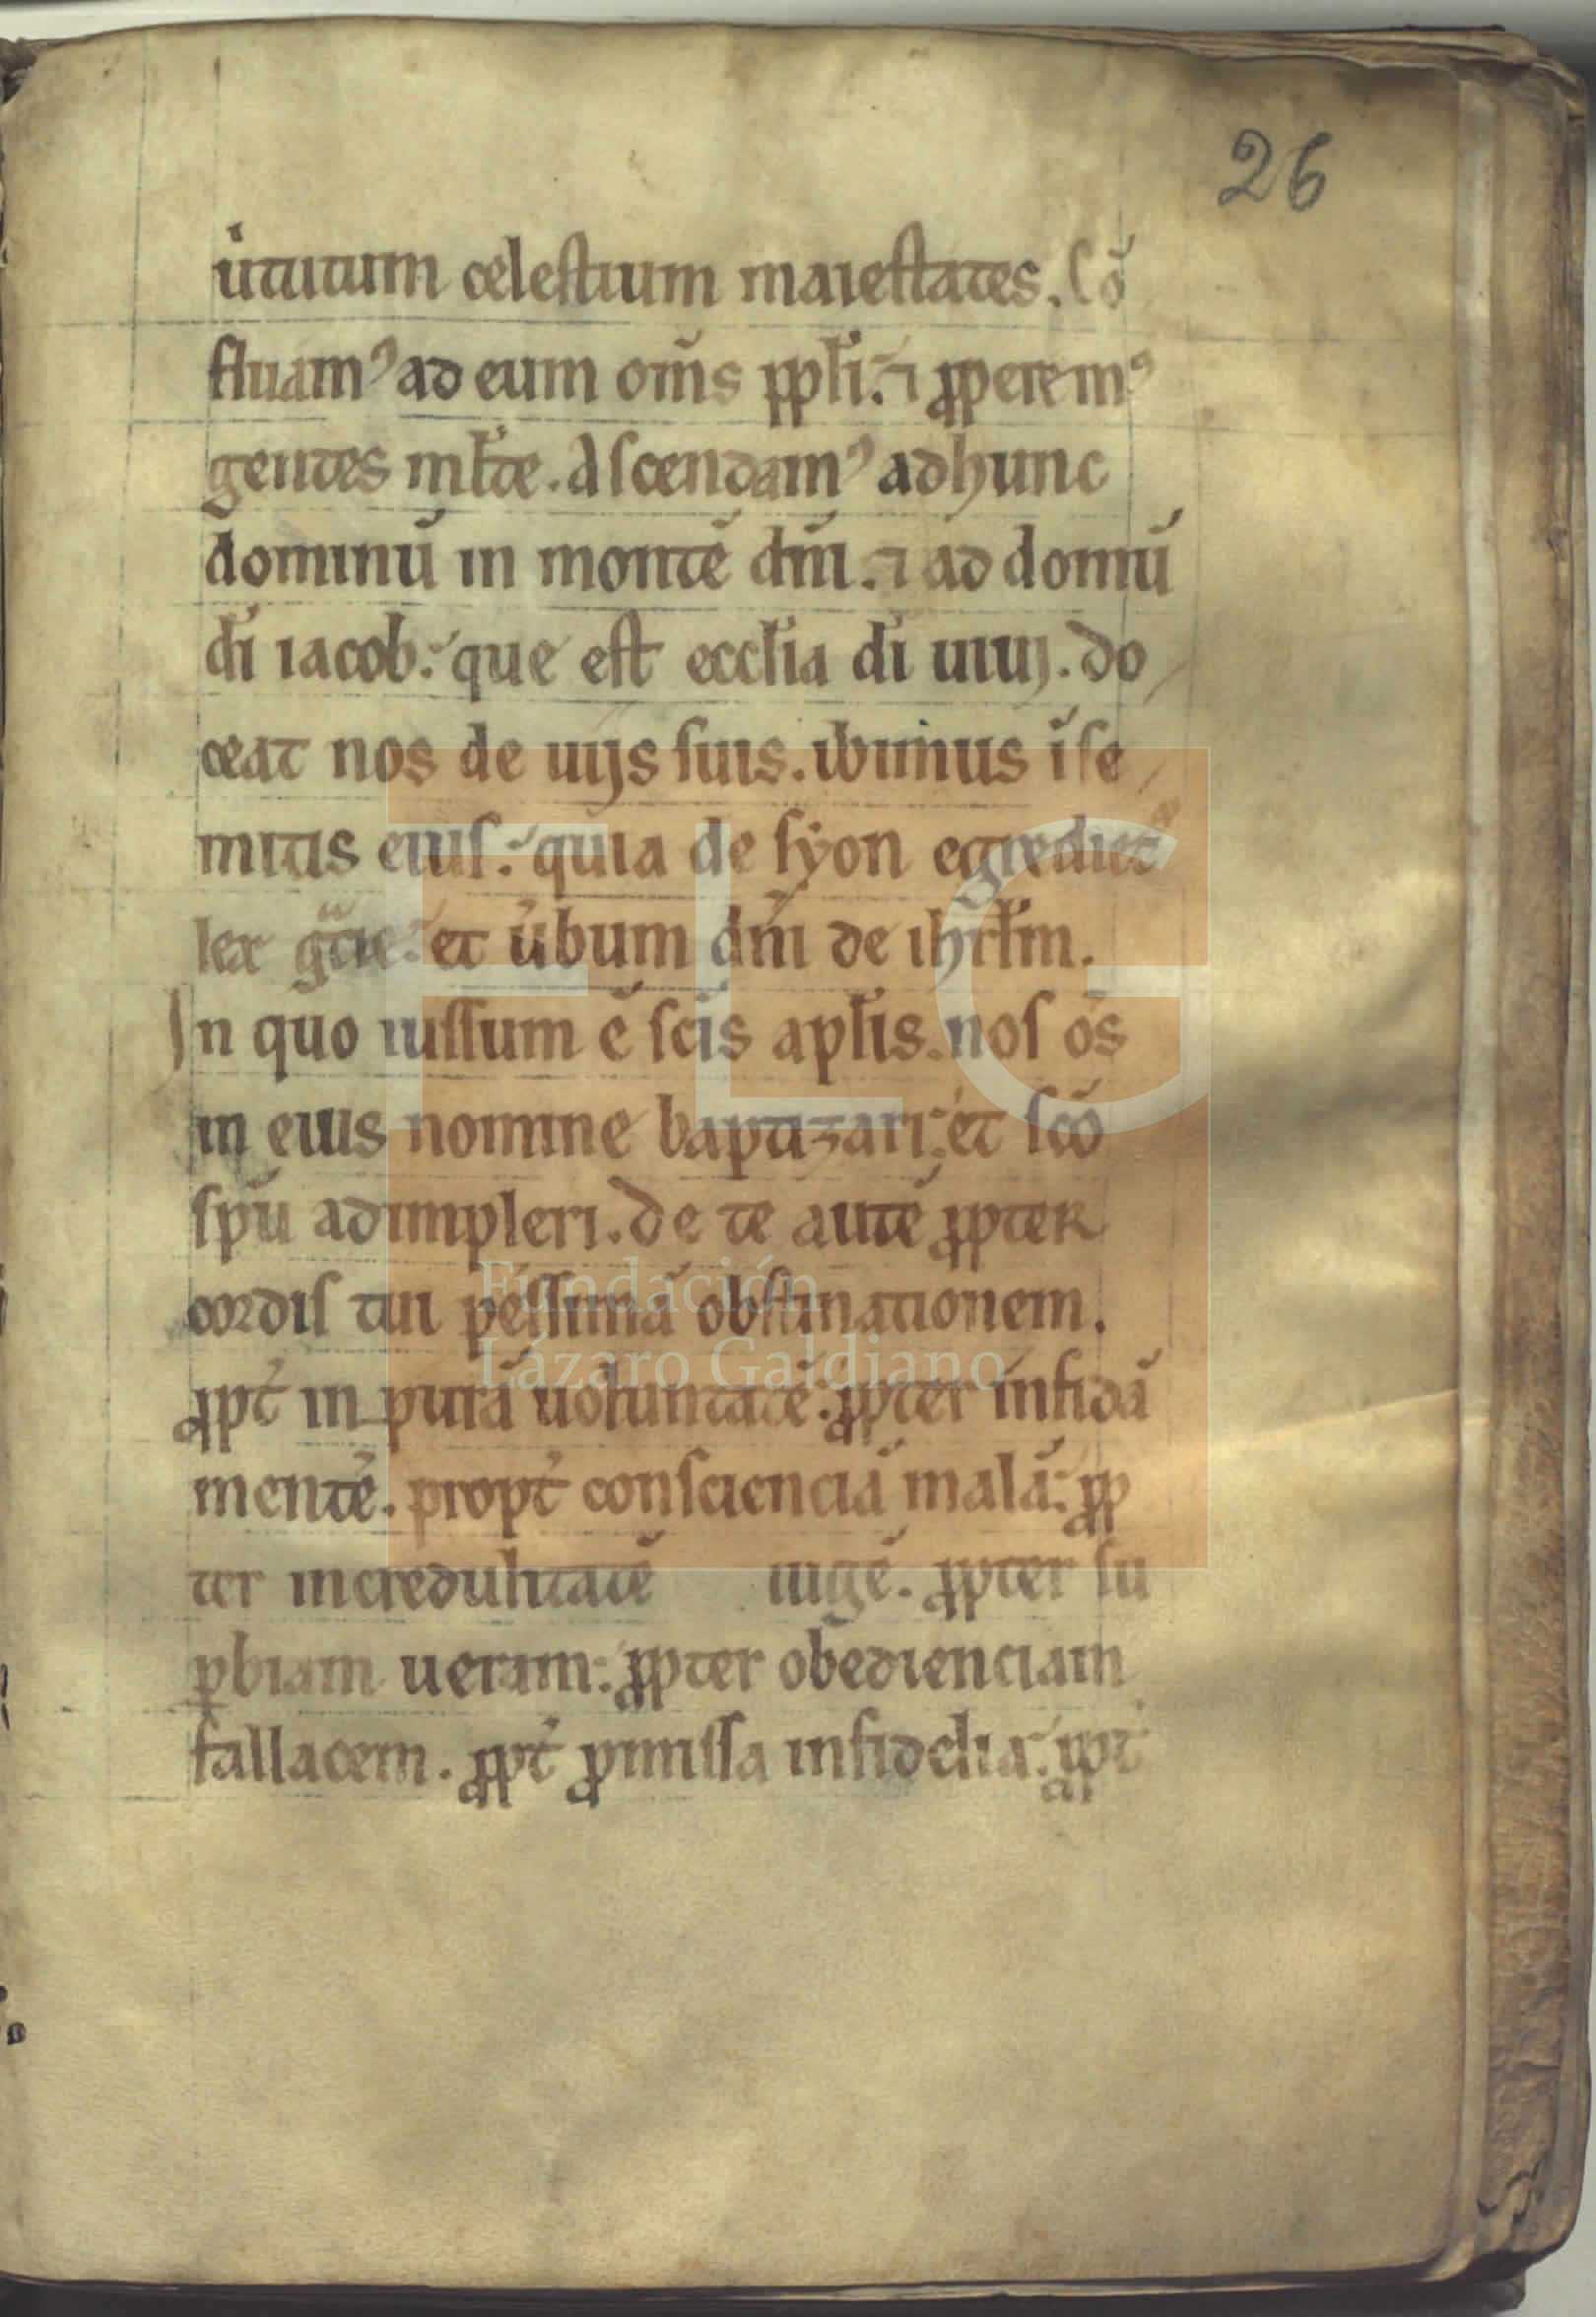 26
uͥtutum celestium maiestates. Cō
fluamꝰ ad eum om̄s pp̄li. ⁊ ꝓperemꝰ
gentes ml̄te. Ascendamꝰ ad hunc
dominū in montē dn̄i. ⁊ ad domū
dī iacob. que est eccl̄ia dī uiuj. do
ceat nos de uijs suis. ibimus ī se
mitis eius. quia de syon egrediet᷑
lex gr̄tie. et u̓bum dn̄i de ihrl̄m.
In quo iussum ē sc̄is apl̄is. nos om̄s
in eius nomine baptizari. et sc̄o
sp̄u adimpleri. de te autē ꝓpter
cordis tui pessimā obstinationem.
ꝓpt̓ in purā uoluntatē. ꝓpter infidā
mentē. propt̓ conscienciā malā. ꝓp
ter incredulitatē iugē. ꝓpter su
ꝑbiam ueram. ꝓpter obedienciam
fallacem. ꝓpt̓ ꝓmissa infidelia. ꝓpt̓
FLG
Fundación
Lázaro Galdiano